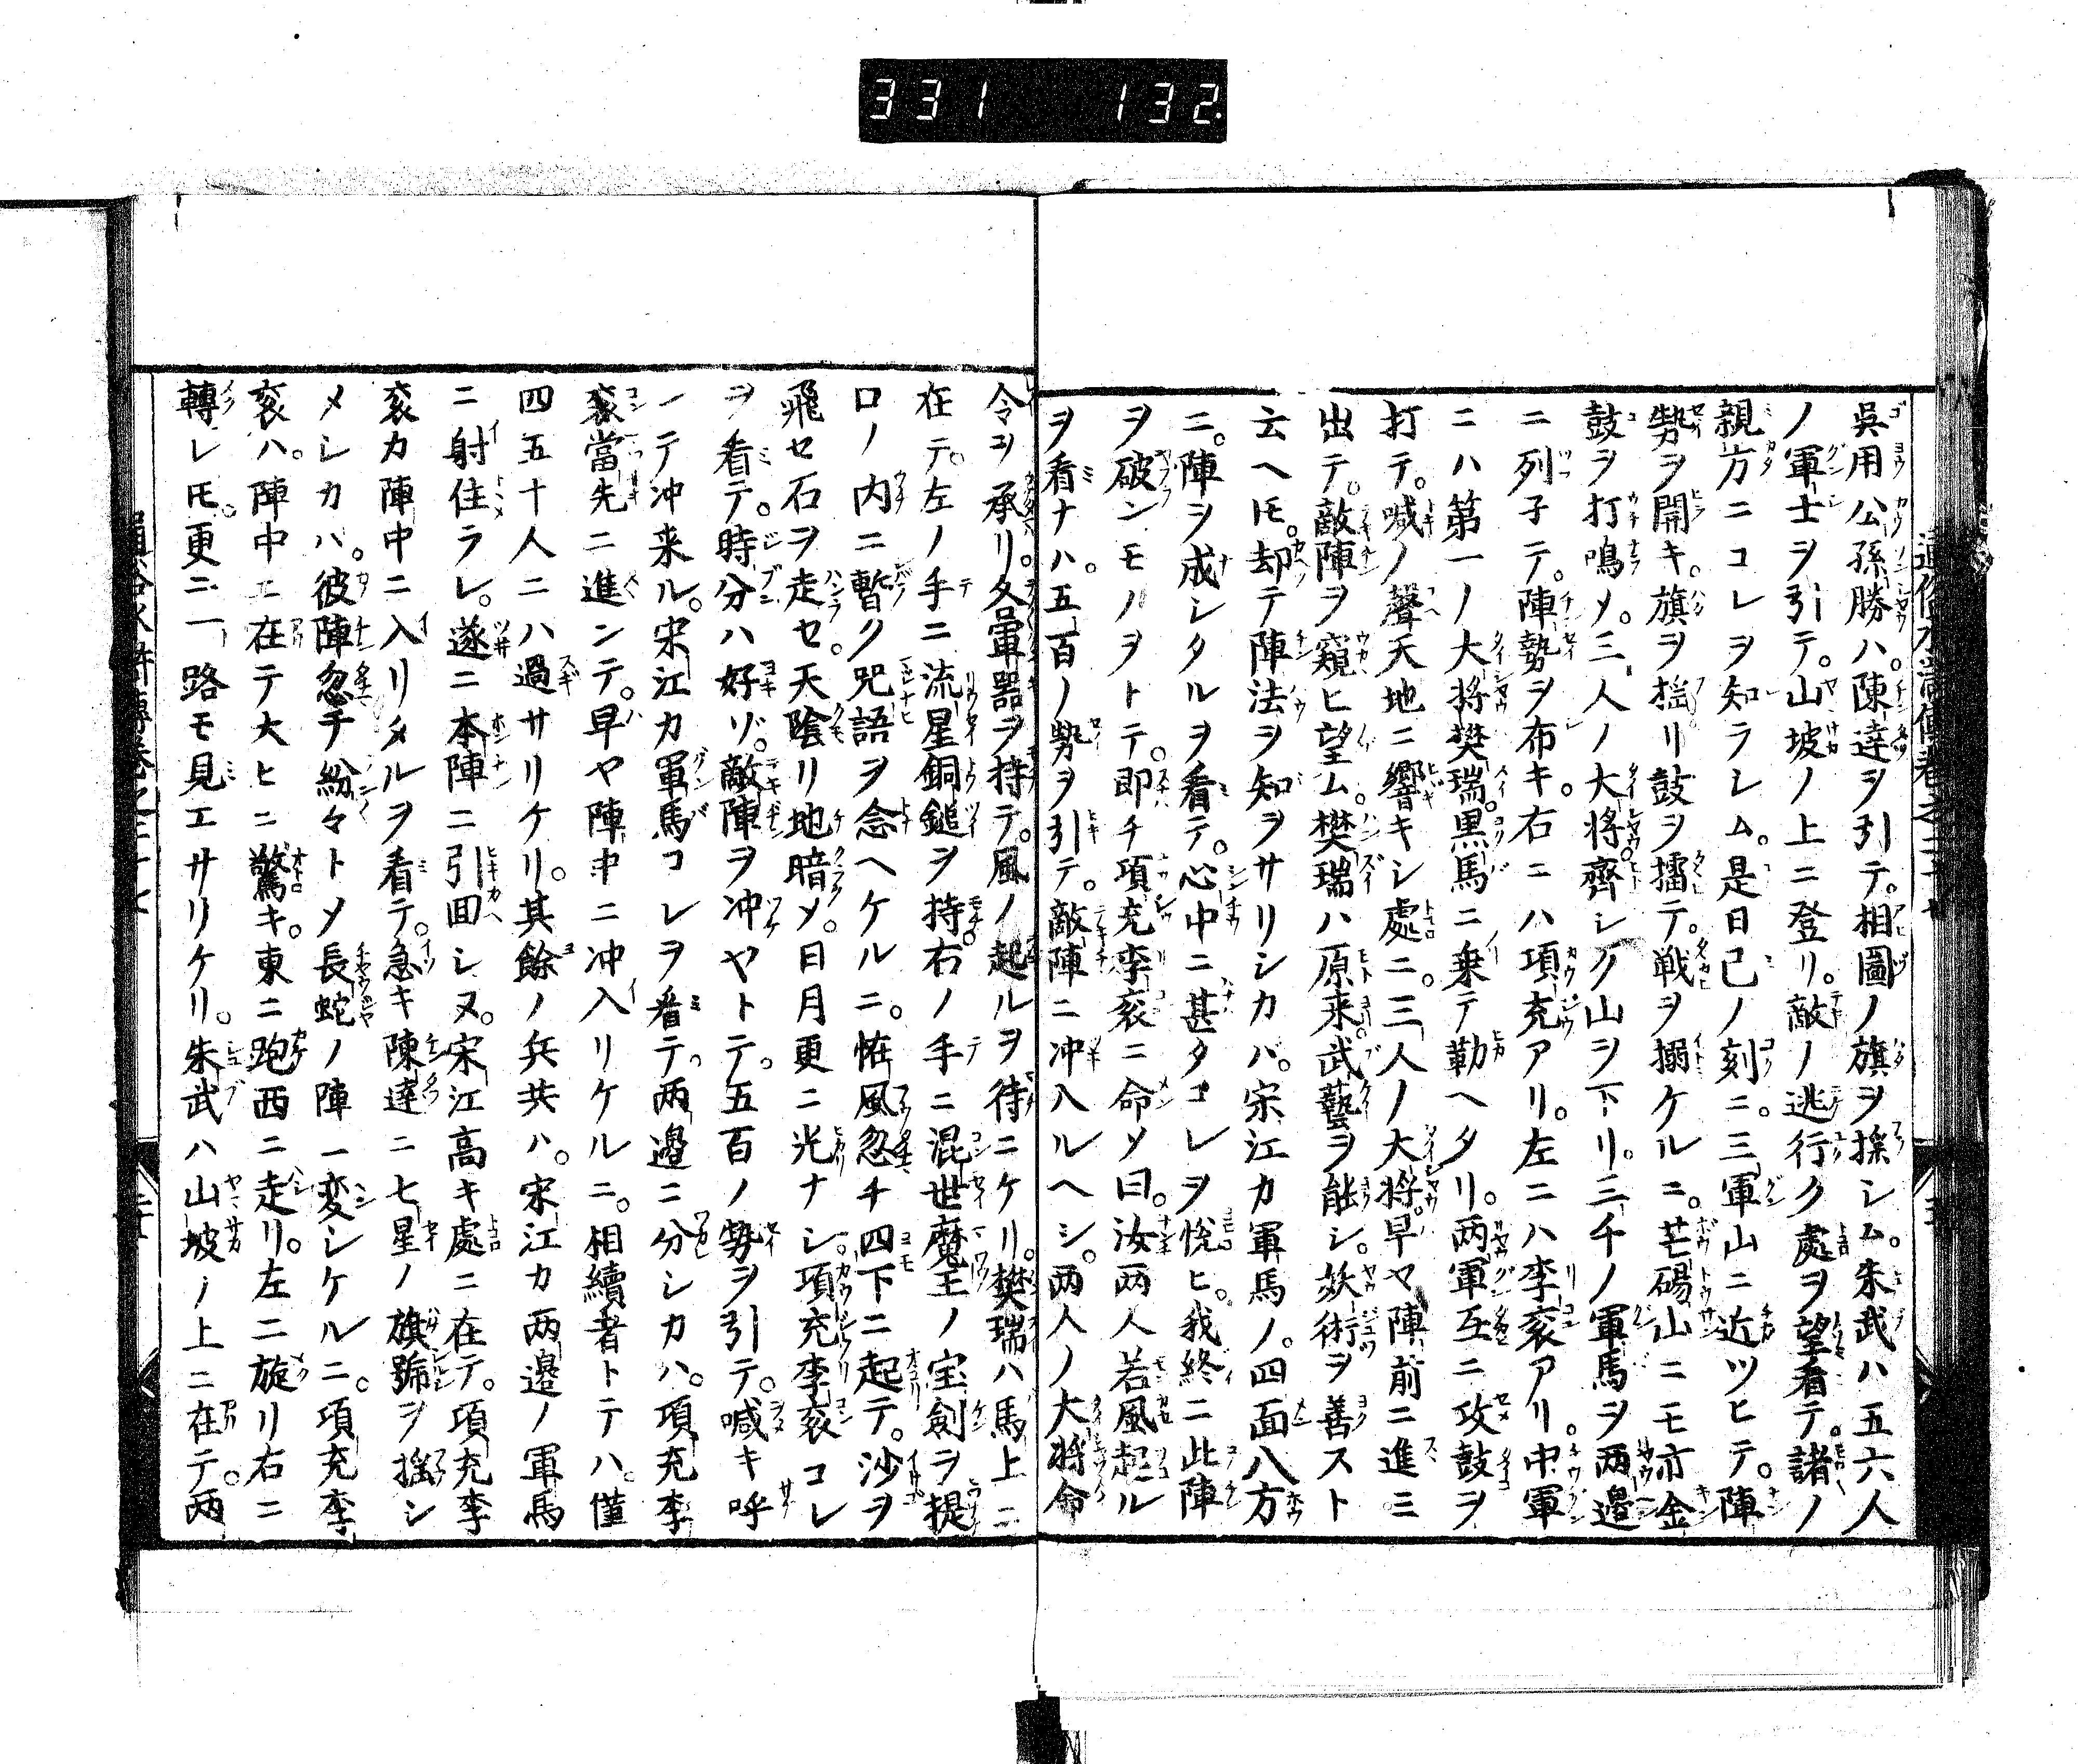 331 132
呉用公孫勝ハ。陳達ヲ引テ。相圖ノ旗ヲ揺シム。朱武ハ五六人
ノ軍士ヲ引テ。山坡ノ上ニ登リ。敵ノ逃行ク處ヲ望看テ。諸ノ
親方ニコレヲ知ラレム。是日已ノ刻ニ。三軍山ニ近ツヒテ。陣
勢ヲ開キ。旗ヲ揺リ鼓ヲ擂テ。戦ヲ搦ケルニ。芒碭山ニモ亦金
鼓ヲ打鳴メ。三人ノ大将齊シク山ヲ下リ。三千ノ軍馬ヲ両邉
ニ列子テ。陣勢ヲ布キ。右ニハ項充アリ。左ニハ李袞アリ。中軍
ニハ第一ノ大将樊瑞。黒馬ニ乗テ勒ヘタリ。両軍互ニ攻鼓ヲ
打テ。喊ノ聲天地ニ響キシ處ニ。三人ノ大将早ヤ陣前ニ進ミ
出テ。敵陣ヲ窺ヒ望ム。樊瑞ハ原来武藝ヲ能シ。妖術ヲ善スト
云ヘ𪜈。却テ陣法ヲ知ヲサリシカハ。宋江カ軍馬ノ。四面八方
ニ。陣ヲ成シタルヲ看テ。心中ニ甚タコレヲ悦ヒ。我終ニ此陣
ヲ破ンモノヲトテ。即チ項充李袞ニ命ソ曰。汝両人若風起ル
ヲ看ナハ。五百ノ勢ヲ引テ。敵陣ニ冲入ルヘシ。両人ノ大将命
令ヲ承リ。各軍器ヲ持テ。風ノ起ルヲ待ニケリ。樊瑞ハ馬上ニ
在テ。左ノ手ニ流星銅鎚ヲ持。右ノ手ニ混世魔王ノ宝劍ヲ提
口ノ内ニ暫ク咒語ヲ念ヘケルニ。怪風忽チ四下ニ起テ。沙ヲ
飛セ石ヲ走セ。天陰リ地暗メ。日月更ニ光ナシ。項充李袞コレ
ヲ看テ。時分ハ好ゾ。敵陣ヲ冲ヤトテ。五百ノ勢ヲ引テ。喊キ呼
一テ冲来ル。宋江カ軍馬コレヲ看テ。両邉ニ分シカハ。項充李
袞當先ニ進ンテ。早ヤ陣中ニ冲入リケルニ。相續者トテハ。僅
四五十人ニハ過サリケリ。其餘ノ兵共ハ。宋江カ両邉ノ軍馬
ニ射住ラレ。遂ニ本陣ニ引回シヌ。宋江高キ處ニ在テ。項充李
袞カ陣中ニ入リタルヲ看テ。急キ陳達ニ七星ノ旗號ヲ揺シ
メシカハ。彼陣忽チ紛々トメ長蛇ノ陣一変シケルニ。項充李
袞ハ。陣中ニ在テ大ヒニ驚キ。東ニ跑西ニ走リ。左ニ旋リ右ニ
轉レ𪜈。更ニ一路モ見エサリケリ。朱武ハ山坡ノ上ニ在テ。両